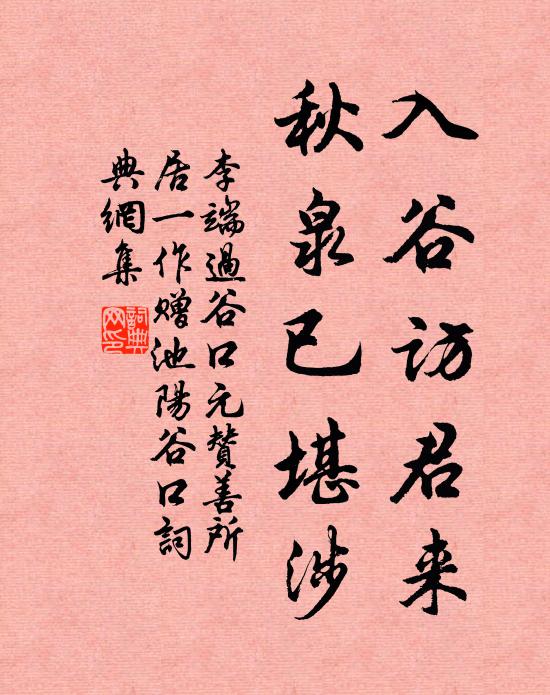 入谷访君来
秋泉已堪涉
李端過谷口元贊善所
居一作赠池陽谷口詞
典網集
詞典
网印